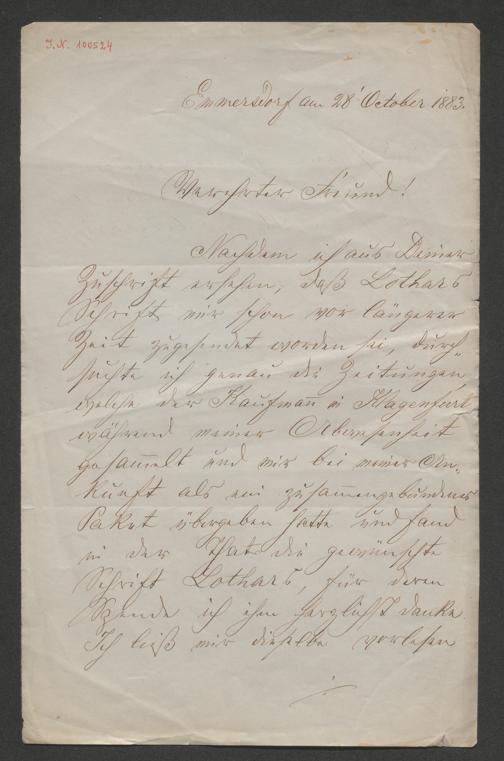 I.N. 100524
Emmersdorf am 28' October 1883.
Verehrter Freund!
Nachdem ich aus Deiner
Zuschrift ersehen, daß Lothars
Schrift mir schon vor längerer
Zeit zugesendet worden sei, durch-
suchte ich genau die Zeitungen
welche der Kaufmann in Klagenfurt
während meiner Abwesenheit
gesammelt und mir bei meiner An-
kunft als ein zusammengebundenes
Paket übergeben hatte und fand
in der That die gewünschte
Schrift Lothars, für deren
Spende ich ihm herzlichst danke.
Ich ließ mir dieselbe vorlesen